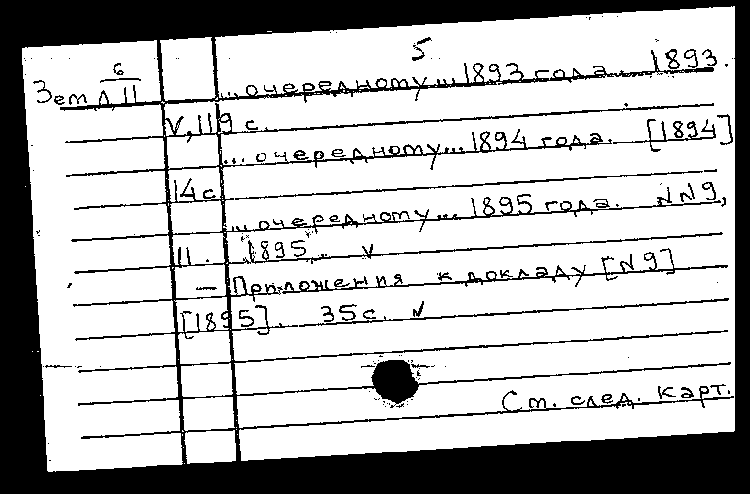 5
6
Зет Л, II ...очередному...1893 года. 1893.
V, 119 с.
...очередному...1894 года. [1894]
14 с
...очередному...1895 года. NN9,
II. 1895. v
— Приложения к докладу [N9]
[1895]. 35 с. v
Ст. след. карт.